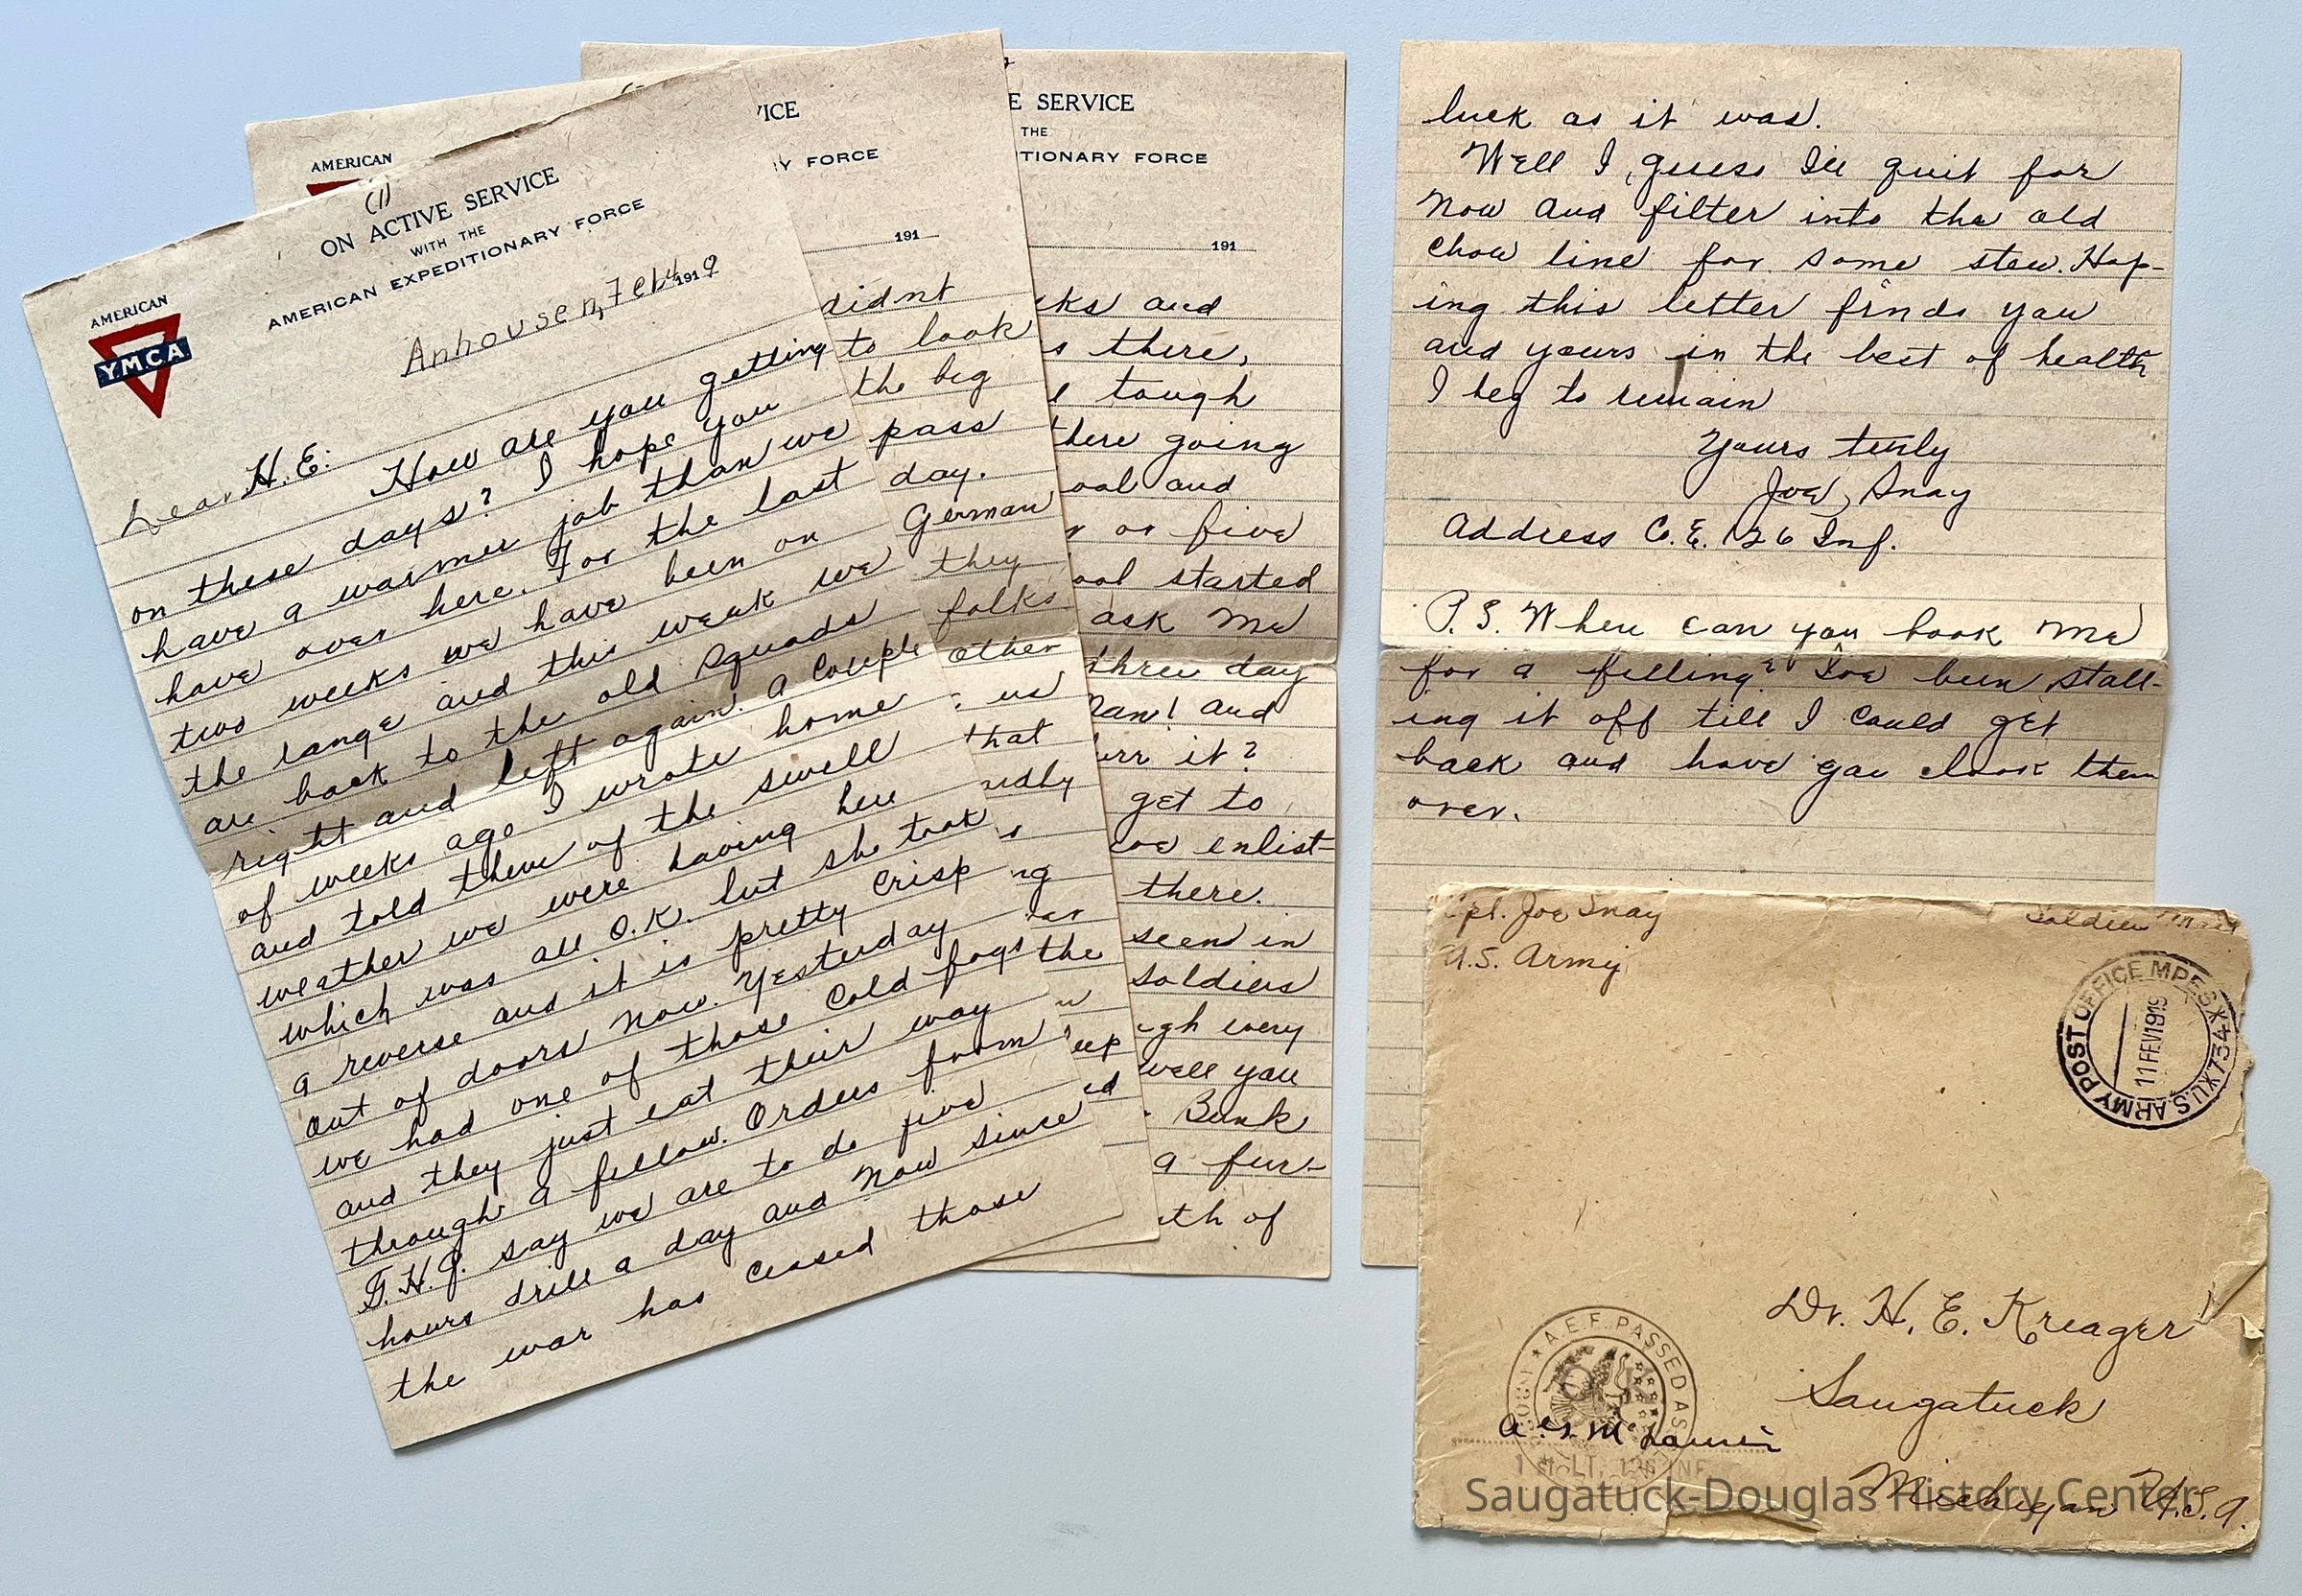 (1)
ON ACTIVE SERVICE
WITH THE
AMERICAN EXPEDITIONARY FORCE
AMERICAN
YMCA
Anhousen, Feb 4 1919
Dear H.E:
How are you getting
on these days? I hope you
have a warmer job than we
have over here. For the last
two weeks we have been on
the range and this weak we
are back to the old squads
right and left again. A couple
of weeks ago I wrote home
and told them of the swell
weather we were having here
which was all O.K. but she took
a reverse and it is pretty crisp
out of doors now. Yesterday
we had one of those cold fogs
and they just eat their way
through a fellow. Orders from
G.H.Q. say we are to do five
hours drill a day and now since
the war has ceased those
AMERICAN
VICE
Y FORCE
191
didnt
to look
the big
pass
day.
German
they
folks
other
us
that
ndly
s
ng
the
eep
ed
E SERVICE
THE
TIONARY FORCE
191
ks and
s there,
tough
there going
ool and
or five
ool started
ask me
three day
and
urr it?
get to
enlist-
there.
seen in
soldiers
gh every
well you
Bunk
a fur-
th of
luck as it was.
Well I guess Ill quit for
now and filter into the old
chow line for some stew. Hop-
ing this letter finds you
and yours in the best of health
I beg to remain
Yours truly
Joe Snay
Address C.E. 126 Inf.
P.S. When can you book me
for a filling? Ive been stall-
ing it off till I could get
back and have you look them
over.
Cpl. Joe Snay
U.S. Army
Soldiers Mail
U.S. ARMY POST OFFICE MPES X 734
11 FEV 1919
Dr. H. E. Kreager
Saugatuck
Michigan U.S.A.
A.E.F. PASSED AS
1st LT. 126 INF.
Saugatuck-Douglas History Center